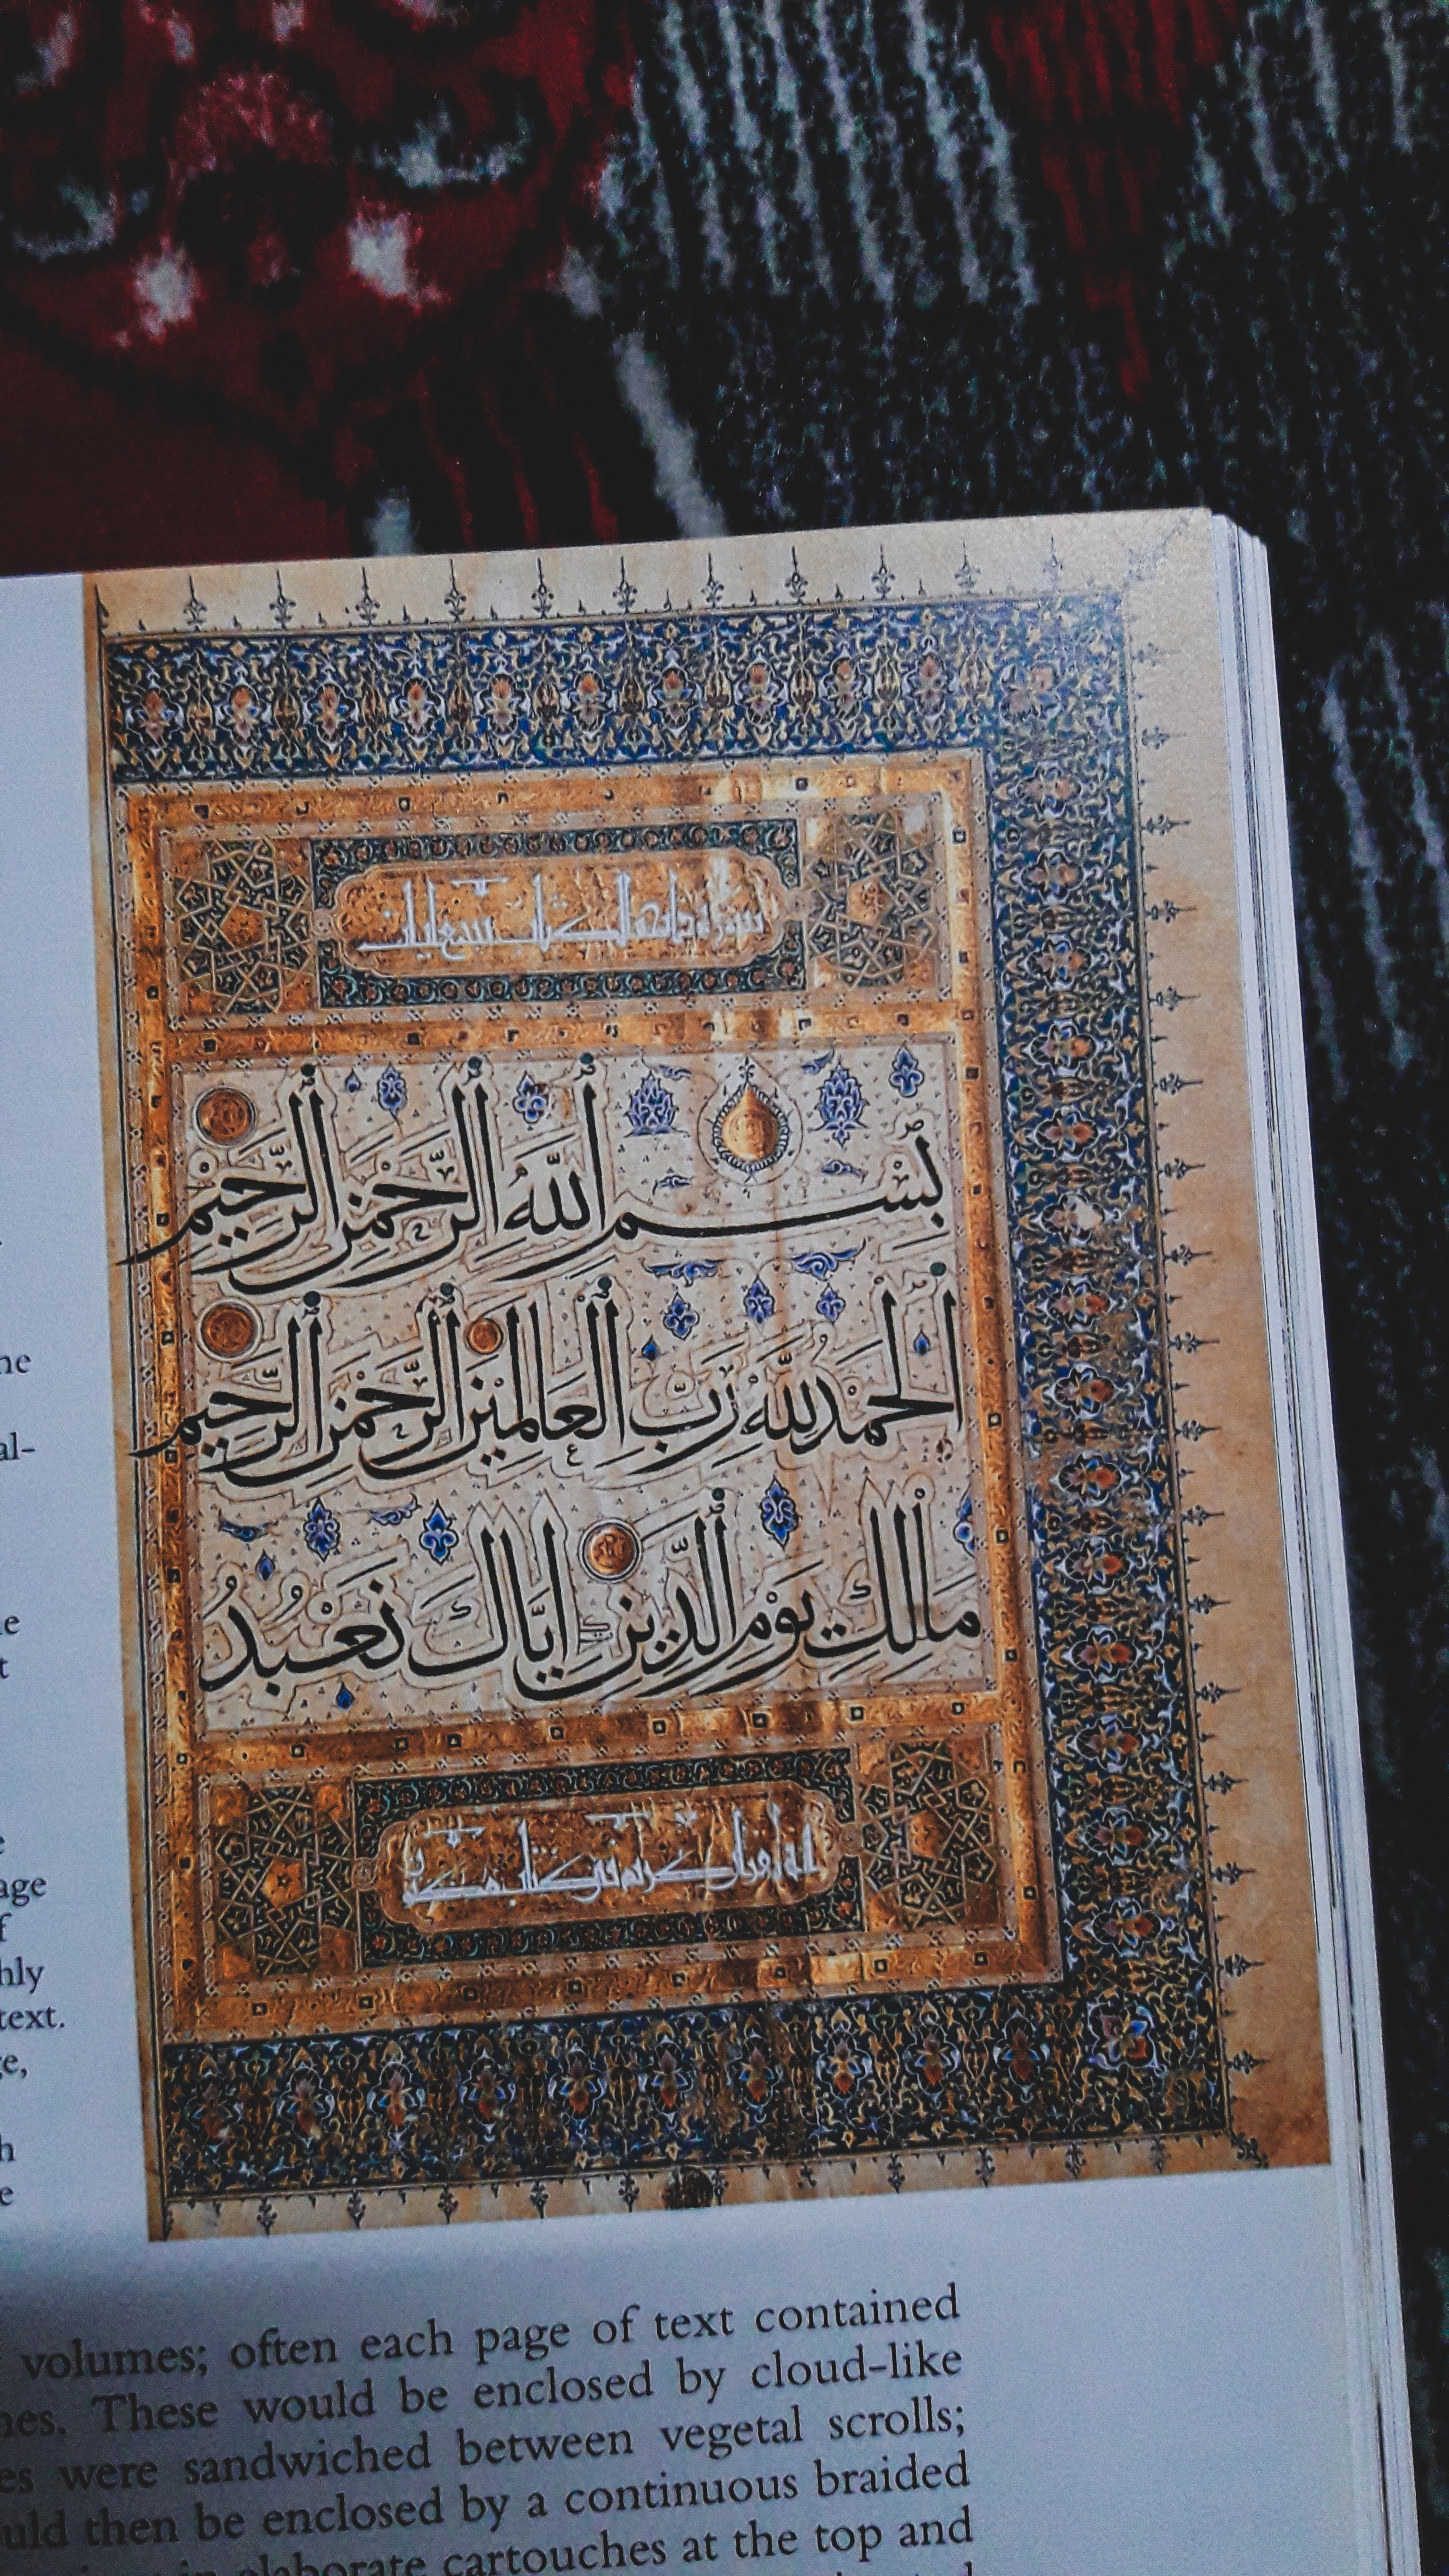 سورة فاتحة الكتاب سبع ايات
بِسْمِ اللَّهِ الرَّحْمٰنِ الرَّحِيْمِ
اَلْحَمْدُ لِلَّهِ رَبِّ الْعَالَمِيْنَ الرَّحْمٰنِ الرَّحِيْمِ
مَالِكِ يَوْمِ الدِّيْنِ اِيَّاكَ نَعْبُدُ
انه لقران كريم في كتاب مكنون
he
al-
le
t
e
age
f
hly
text.
e,
h
e
volumes; often each page of text contained
nes. These would be enclosed by cloud-like
es were sandwiched between vegetal scrolls;
uld then be enclosed by a continuous braided
in elaborate cartouches at the top and